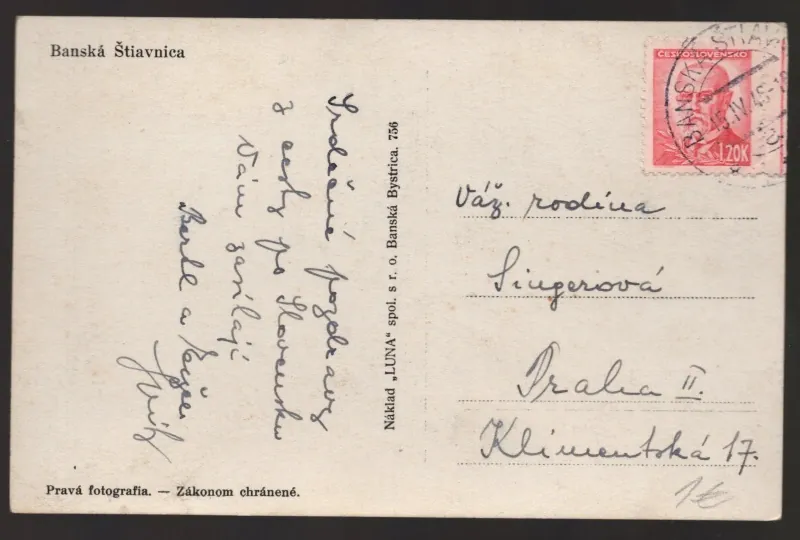 Banská Štiavnica
Srdečné pozdravy
z cesty po Slovensku
Vám zasílají
a
Náklad „LUNA“ spol. s r. o. Banská Bystrica. 756
ČESKOSLOVENSKO
1.20K
BANSKÁ ŠTIAV
15.IV.46-18
Váž. rodina
Singeriová
Praha II.
Klimentská 17.
Pravá fotografia. — Zákonom chránené.
1€